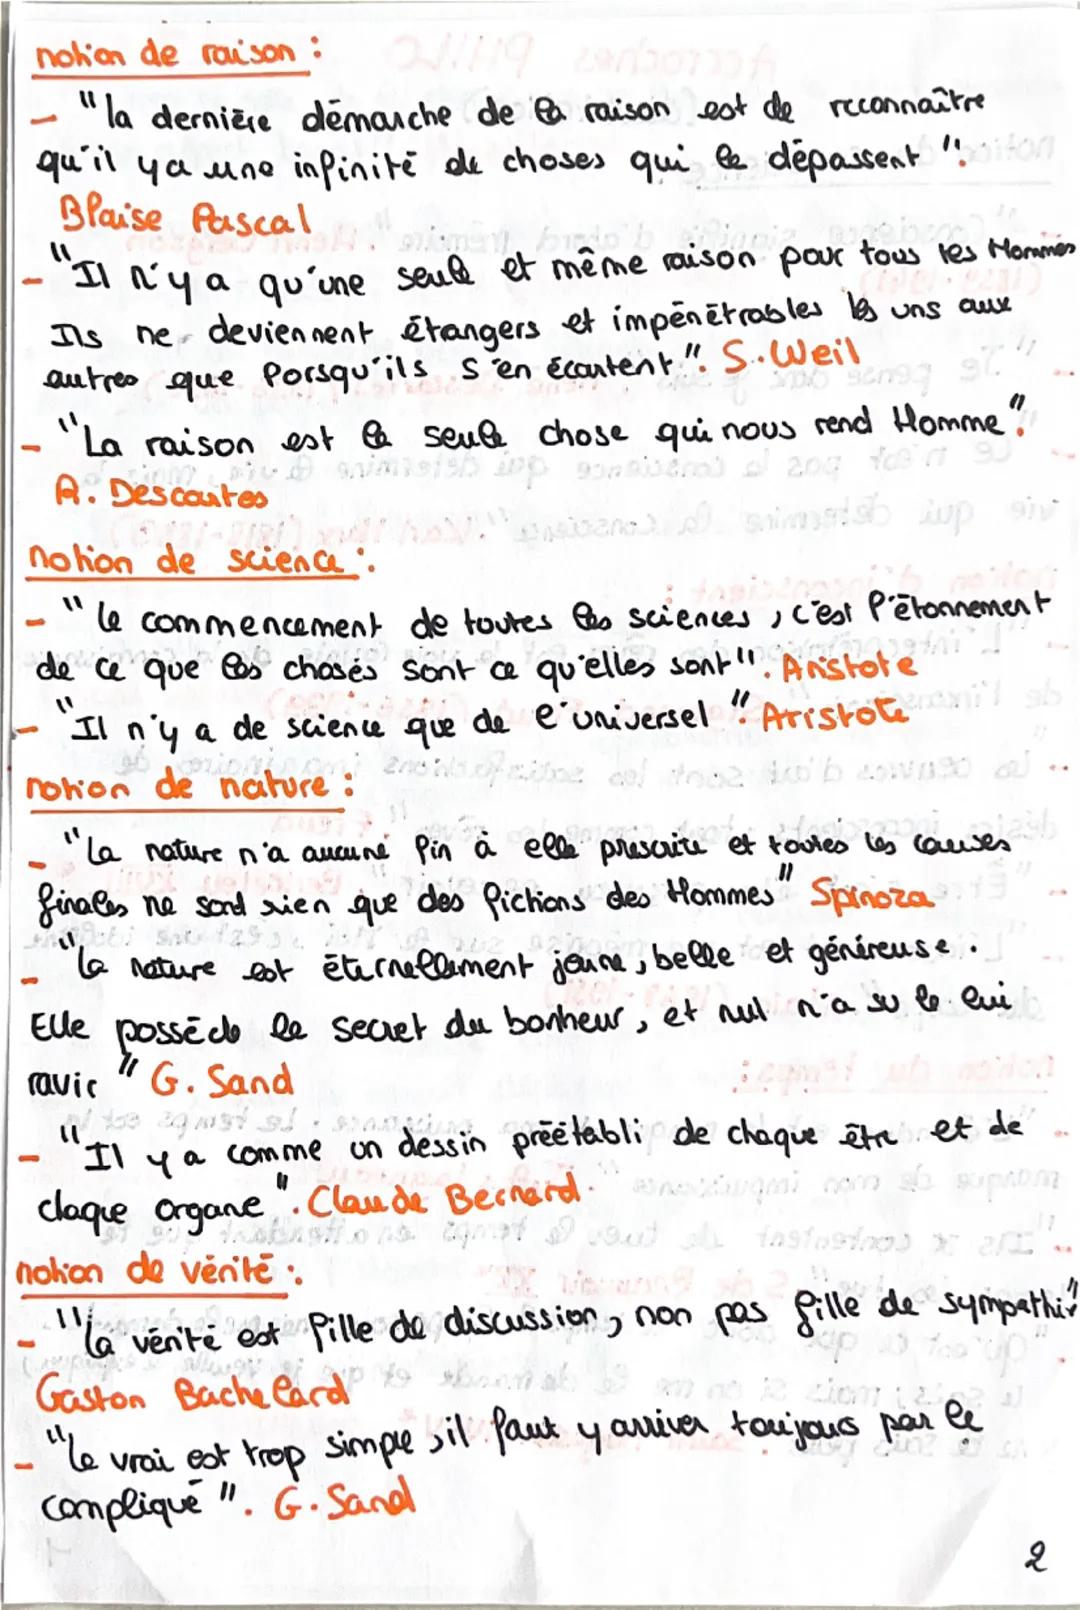 notion de raison :
- "la dernière démarche de la raison est de reconnaître
qu'il y a une infinité de choses qui la dépassent".
Blaise Pascal
- "Il n'y a qu'une seule et même raison pour tous les Hommes
Ils ne deviennent étrangers et impénétrables les uns aux
autres que lorsqu'ils s'en écartent". S. Weil
- "La raison est la seule chose qui nous rend Homme".
R. Descartes
notion de science :
- "le commencement de toutes les sciences, c'est l'étonnement
de ce que les choses sont ce qu'elles sont". Aristote
- "Il n'y a de science que de l'universel". Aristote
notion de nature :
- "La nature n'a aucune fin à elle prescrite et toutes les causes
finales ne sont rien que des fictions des Hommes" Spinoza
- "la nature est éternellement jeune, belle et généreuse.
Elle possède le secret du bonheur, et nul n'a su le lui
ravir" G. Sand
- "Il y a comme un dessin préétabli de chaque être et de
claque organe". Claude Bernard
notion de vérité :
- "la vérité est fille de discussion, non pas fille de sympathie"
Gaston Bachelard
- "le vrai est trop simple, il faut y arriver toujours par le
compliqué". G. Sand
2